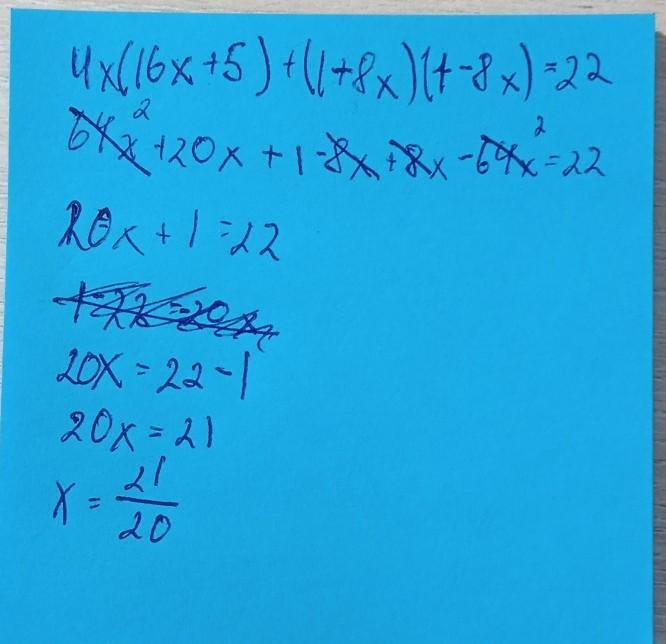 4x(16x+5)+(1+8x)(1-8x)=22
64x²+20x+1-8x+8x-64x²=22
20x+1=22
20x=22-1
20x=21
x=21/20